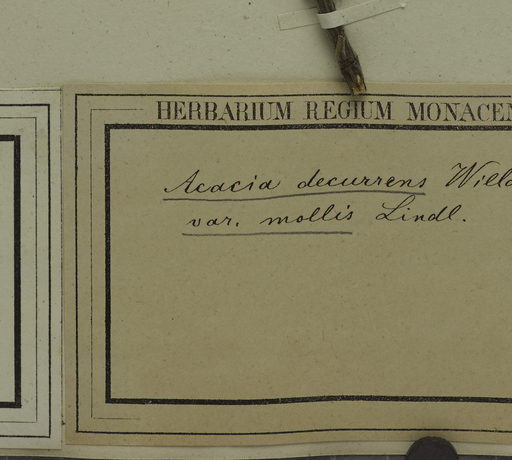 HERBARIUM REGIUM MONACEN
Acacia decurrens Willd
var. mollis Lindl.